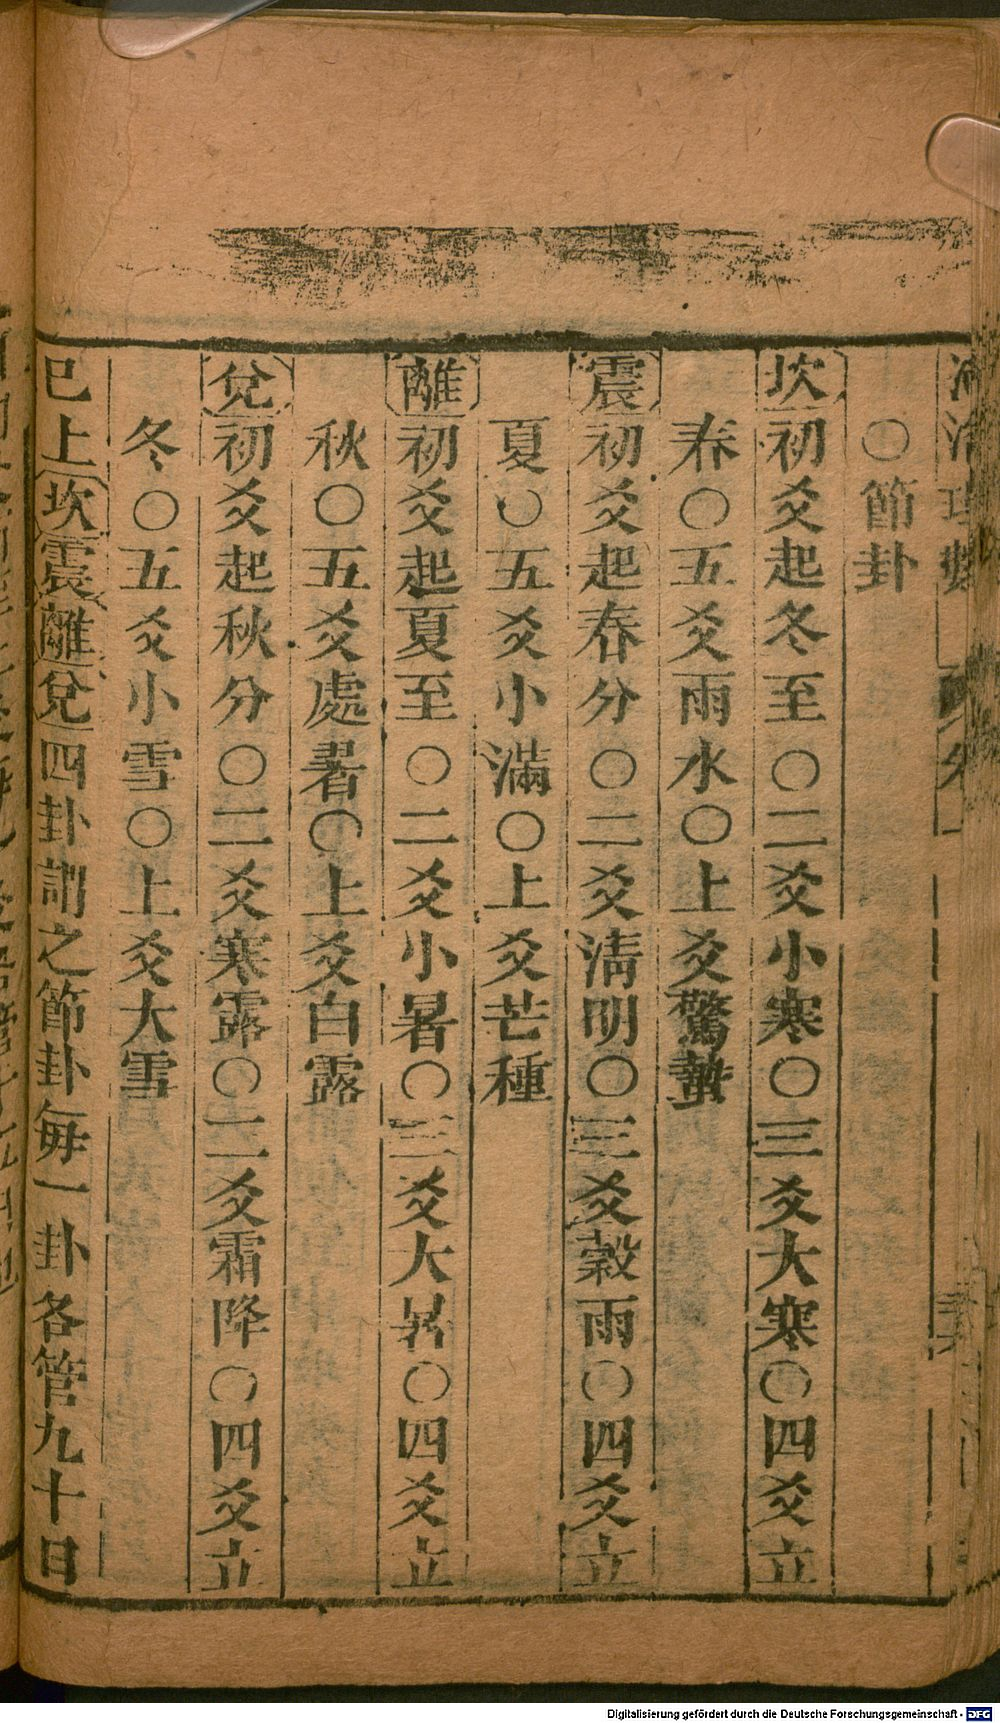 〇節卦
坎初爻起冬至〇二爻小寒〇三爻大寒〇四爻立
春〇五爻雨水〇上爻驚蟄
震初爻起春分〇二爻淸明〇三爻穀雨〇四爻立
夏〇五爻小滿〇上爻芒種
離初爻起夏至〇二爻小暑〇三爻大暑〇四爻立
秋〇五爻處暑〇上爻白露
兌初爻起秋分〇二爻寒露〇二爻霜降〇四爻立
冬〇五爻小雪〇上爻大雪
已上坎震離兌四卦謂之節卦每一卦各管九十日
Digitalisierung gefördert durch die Deutsche Forschungsgemeinschaft - DFG